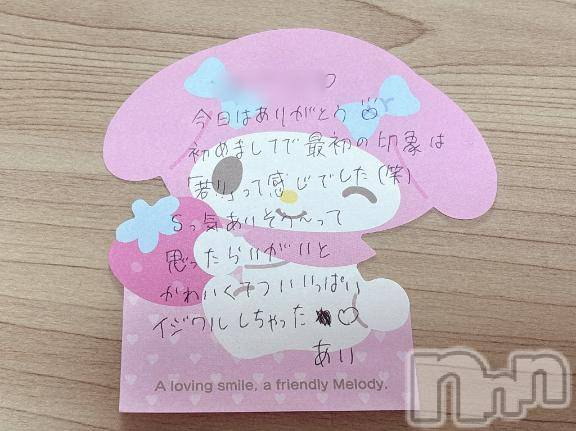 今日はありがとう
初めましてで最初の印象は
「若!!」って感じでした(笑)
Sっ気ありそう〜って
思ったらいがいと
かわいくてついいっぱい
イジワルしちゃった♡
あい
A loving smile, a friendly Melody.